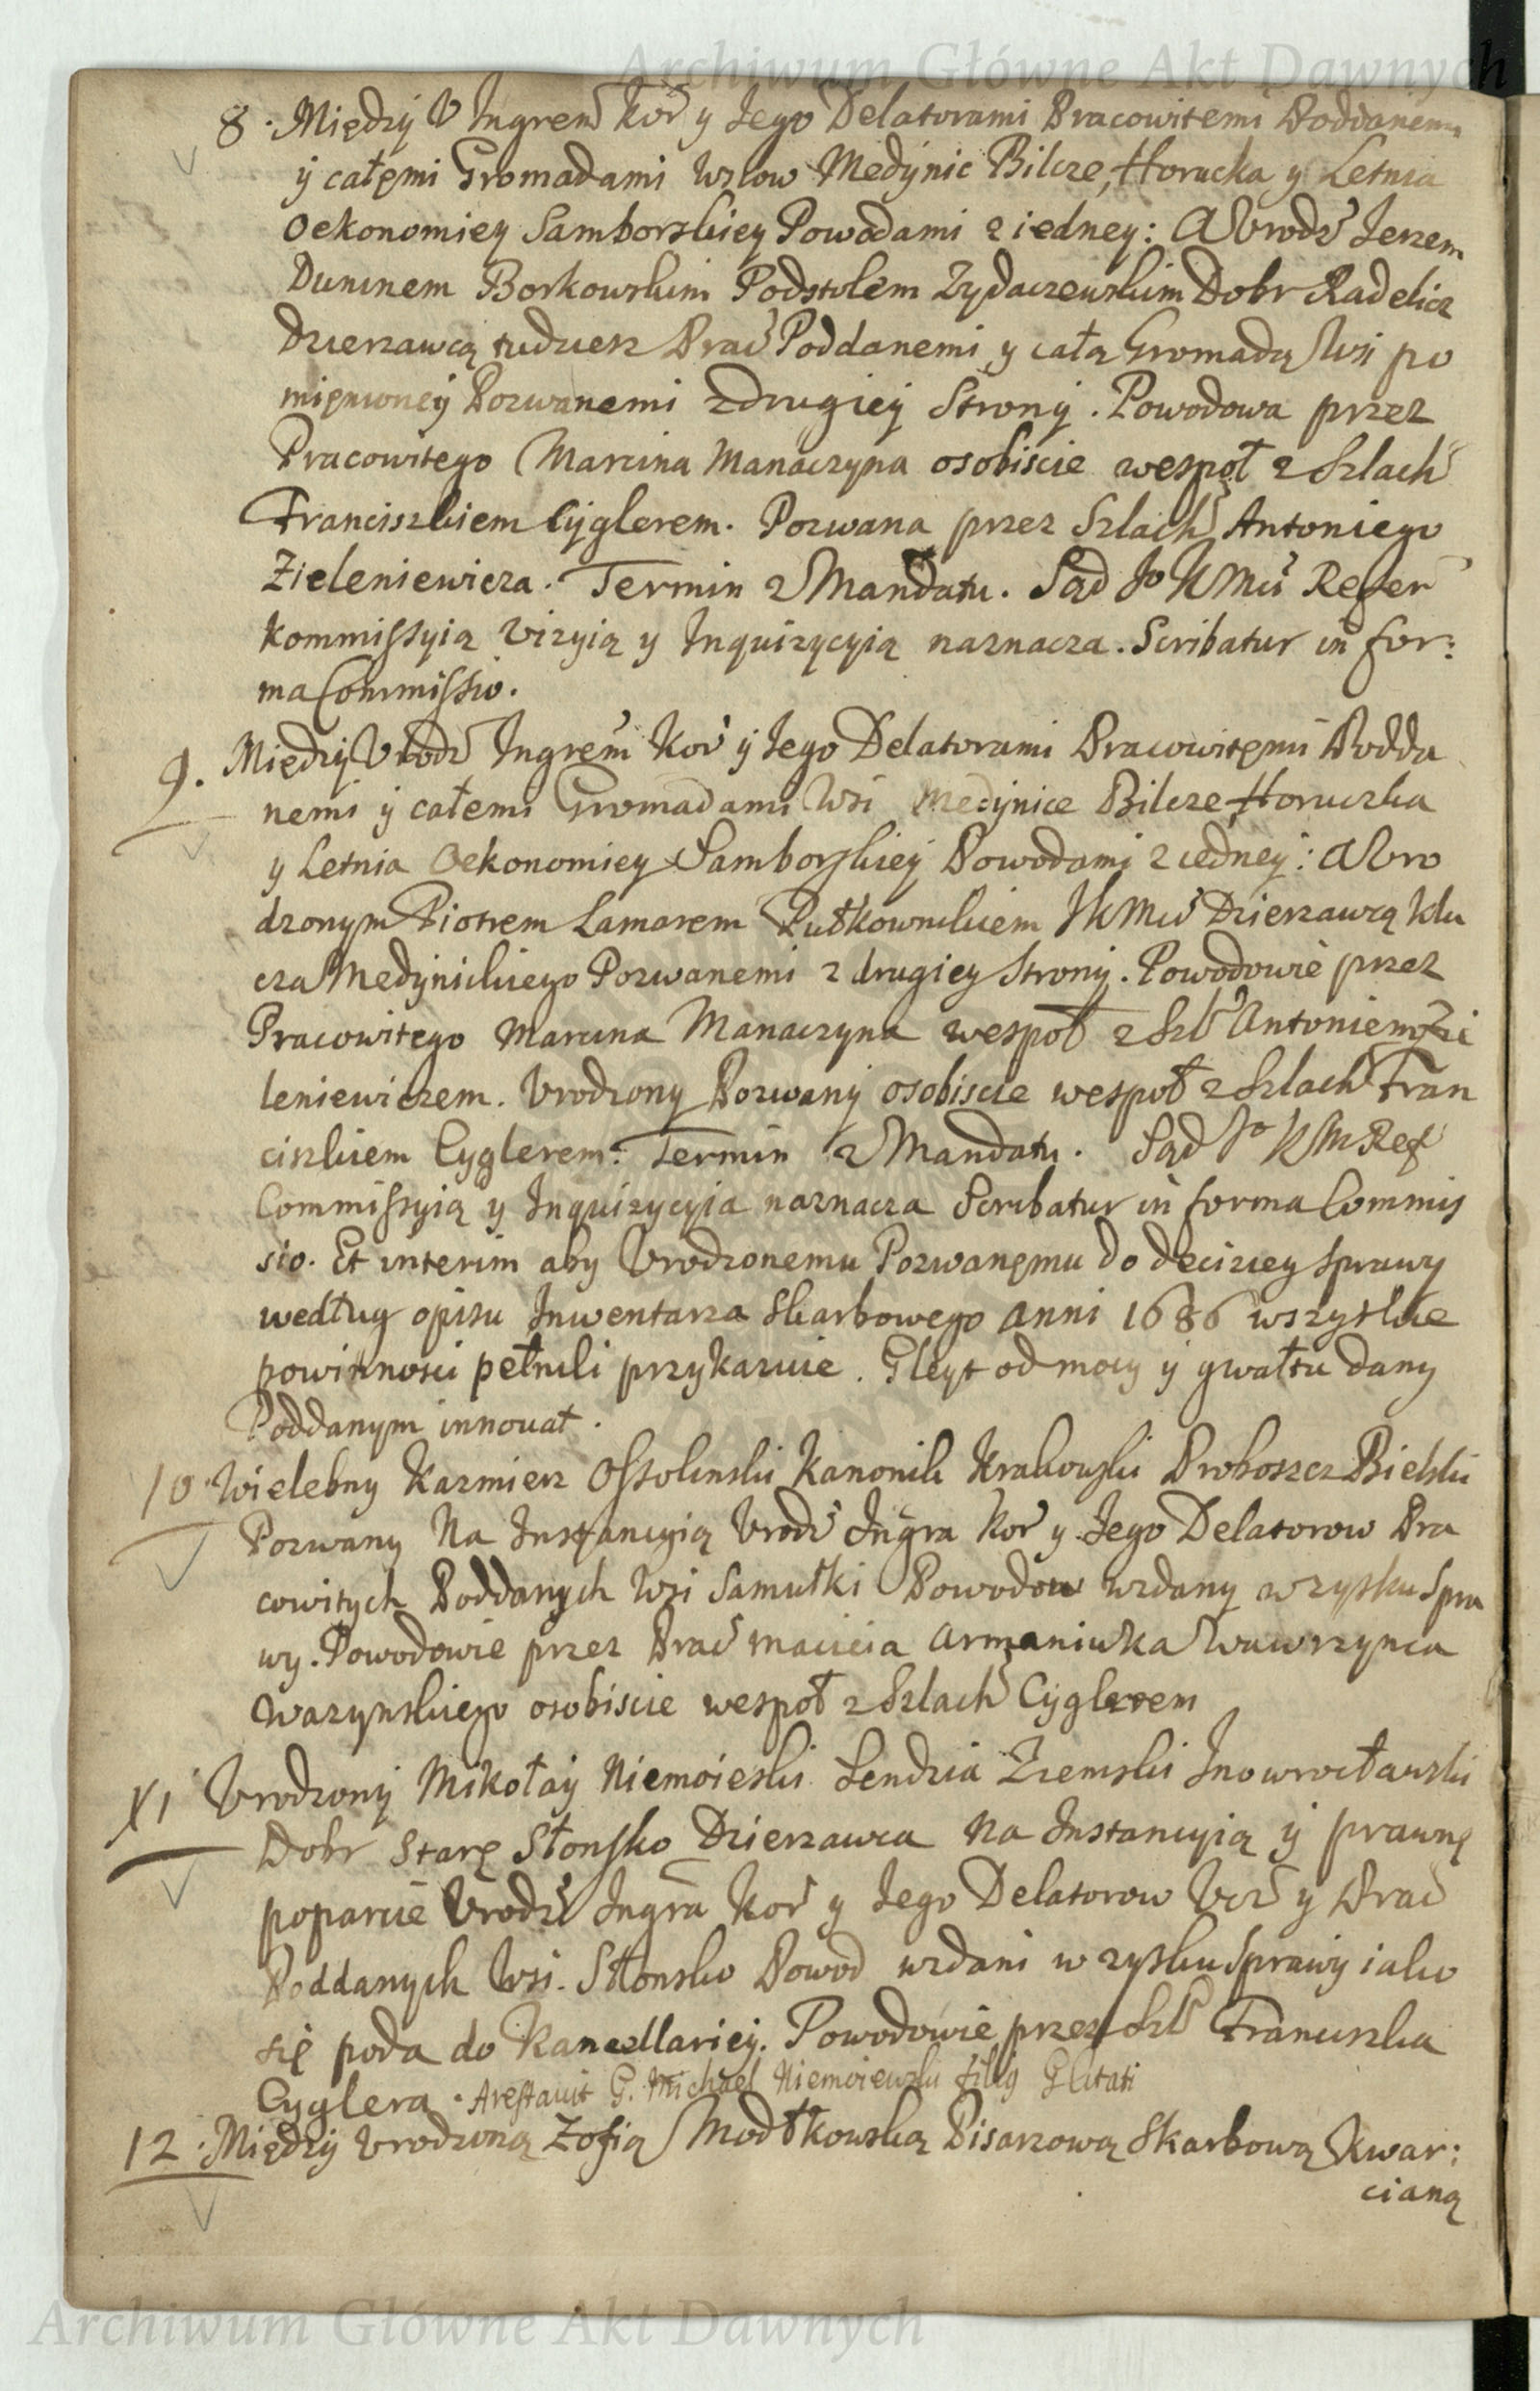 Archiwum Główne Akt Dawnych
8. Między V Ingrem Kor y Jego Delatorami Pracowitemi Poddanemi
ÿ całęmi Gromadami Wslow Medÿnic Bilcze, Horucka y Letnia
Oekonomiey Samborskiey Powodami z iedney: A Vrodz Jerzem
Duninem Borkowskim Podstolem Zydaczewskim Dobr Radelicz
Dzierzawcą tudziesz Prac Poddanemi y całą Gromadą Wsi po
mięnioneÿ Pozwanemi z drugieÿ Stronÿ. Powodowa przez
Pracowitego Marcina Manaczyna osobiscie wespoł z Szlach
Franciszkiem Cÿglerem. Pozwana przez Szlach Antoniego
Zieleniewicza. Termin z Mandatu. Sąd Jo KMci Refer
Kommissyią Vizyią y Inquizycyią naznacza. Scribatur in for:
ma Commissio.
9. Międzÿ Vrodz Ingrem Kor ÿ Jego Delatorami Pracowitęmi Podda
nemi ÿ całemi Gromadami Wsi Medÿnice Bilcze Horuczka
y Letnia Oekonomiey Samborskieÿ Powodami z iedneÿ: A Vro
dzonym Piotrem Lamarem Pułkownikiem JKMci Dzierzawcą klu
cza Medÿnickiego Pozwanemi z drugiey Stronÿ. Powodowie przez
Pracowitego Marcina Manaczyna wespoł z Szl Antoniem Zi
leniewiczem. Vrodzony Pozwanÿ osobiscie wespoł z Szlach Fran
ciszkiem Cyglerem. Termin z Mandatu. Sąd Jo KM Ref
Commissyią y Inquizycyia naznacza Scribatur in forma Commis
sio. Et interim aby Vrodzonemu Pozwanęmu do deciziey sprawy
według opisu Inwentarza Skarbowego Anni 1686 wszystkie
powinnosci pełnili przykazuie. Gleyt od mocy ÿ gwałtu dany
Poddanym innouat.
10 Wielebny Kazmierz Ossolinski Kanonik Krakowski Proboszcz Bielski
Pozwany Na Instancyią Vrodz Ingra Kor y Jego Delatorow Pra
cowitych Poddanych Wsi Samułki Powodow wzdany w zysku Spra
wy. Powodowie przez Prac Macieia Armaniuka Wawrzynca
Wazynskiego osobiscie wespoł z Szlach Cÿglerem
XI Vrodzonÿ Mikołaÿ Niemoieski Sendzia Ziemski Inowrocławski
Dobr Starę Słonsko Dzierzawca Na Instancyią ÿ prawnę
poparcie Vrodz Ingra Kor y Jego Delatorow Vcz y Prac
Poddanych Wsi Słonsko Powod wzdani w zysku Sprawÿ iako
się poda do Kancellarieÿ. Powodowie przez Szl Franciszka
Cyglera. Arestauit G. Michael Niemoiewski filiq Citati
12. Międzÿ Vrodzoną Zofią Modłkowską Pisarzową Skarbową Kwar:
cianą
Archiwum Główne Akt Dawnych